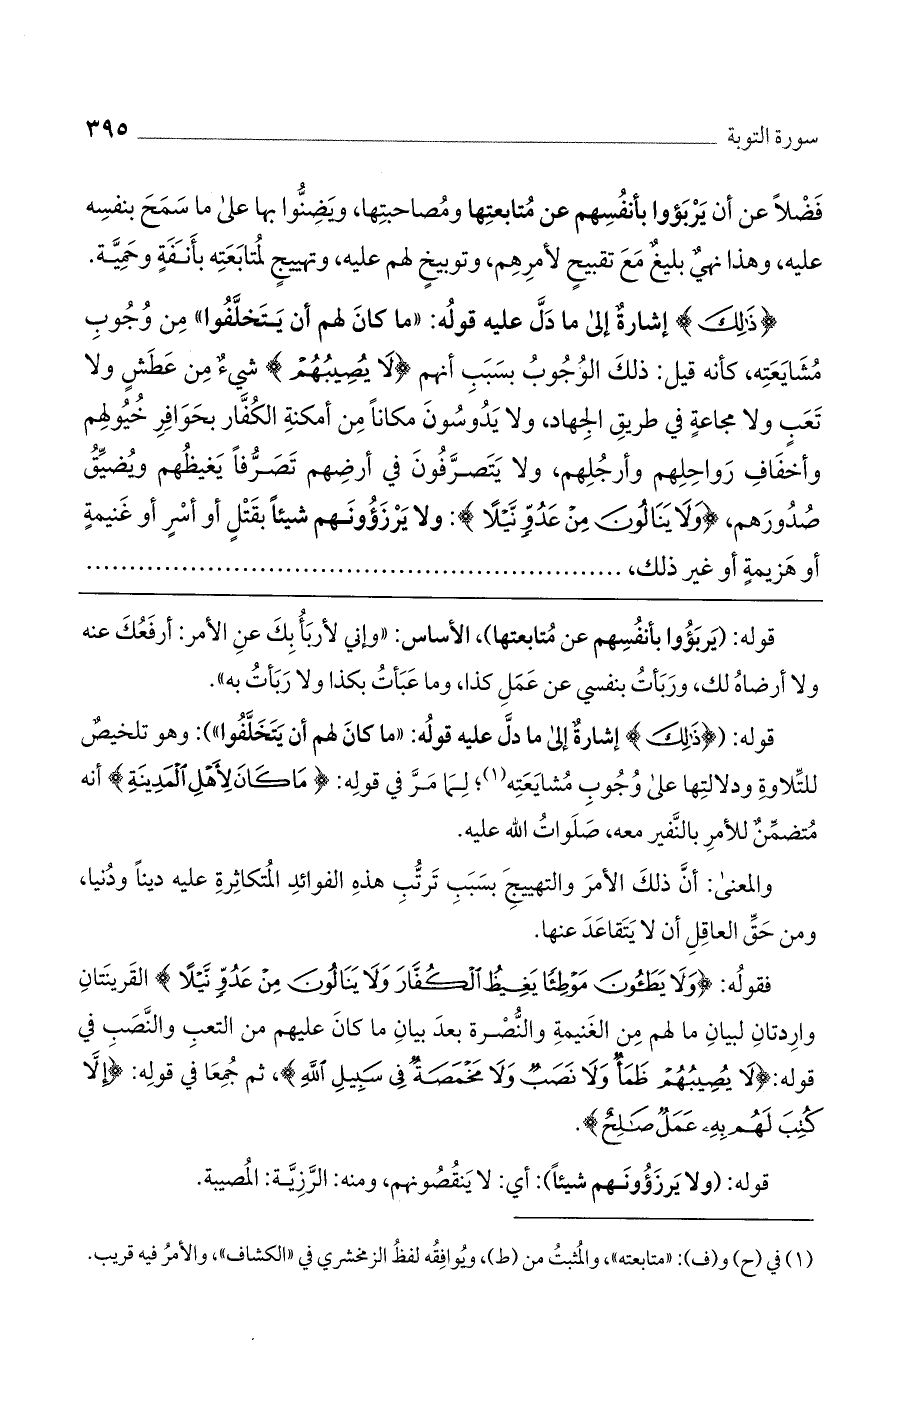 سورة التوبة ٣٩٥
فَضْلاً عن أن يَرْبَؤوا بأنفُسِهم عن مُتابعتِها ومُصاحبتِها، ويَضِنُّوا بها علىٰ ما سَمَحَ بنفسِه
عليه، وهذا نهيٌ بليغٌ مَعَ تقبيحٍ لأمرِهِم، وتوبيخٍ لهم عليه، وتهييجٍ لمُتابَعَتِه بأَنَفَةٍ وحَمِيَّة.
﴿ذَٰلِكَ﴾ إشارةٌ إلىٰ ما دَلَّ عليه قولُه: «ما كانَ لهم أن يَتَخلَّفُوا» مِن وُجُوبِ
مُشايَعَتِه، كأنه قيل: ذلكَ الوُجُوبُ بسَبَبِ أنهم ﴿لَا يُصِيبُهُمْ﴾ شيءٌ مِن عَطَشٍ ولا
تَعَبٍ ولا مجاعةٍ في طريقِ الجهاد، ولا يَدُوسُونَ مكاناً مِن أمكنةِ الكُفَّار بحَوَافِرِ خُيُولهِم
وأخفَافِ رَواحِلِهم وأرجُلِهم، ولا يَتَصرَّفُونَ في أرضِهم تَصَرُّفاً يَغيظُهم ويُضيِّقُ
صُدُورَهم، ﴿وَلَا يَنَالُونَ مِنْ عَدُوٍّ نَّيْلًا﴾: ولا يَرْزَؤُونَهم شيئاً بقَتْلٍ أو أسْرٍ أو غَنيمةٍ
أو هَزيمةٍ أو غيرِ ذلك، ............................................................
قوله: (يَربَؤُوا بأنفُسِهم عن مُتابعتها)، الأساس: «وإني لأربَأُ بِكَ عنِ الأمر: أرفَعُكَ عنه
ولا أرضاهُ لك، ورَبَأتُ بنفسي عن عَمَلِ كذا، وما عَبَأتُ بكذا ولا رَبَأتُ به».
قوله: (﴿ذَٰلِكَ﴾ إشارةٌ إلىٰ ما دلَّ عليه قولُه: «ما كانَ لهم أن يَتَخَلَّفُوا»): وهو تلخيصٌ
للتِّلاوةِ ودلالتِها علىٰ وُجُوبِ مُشايَعَتِه(١)؛ لِمَا مَرَّ في قولِه: ﴿مَا كَانَ لِأَهْلِ ٱلْمَدِينَةِ﴾ أنه
مُتضمِّنٌ للأمرِ بالنَّفيرِ معه، صَلَواتُ الله عليه.
والمعنىٰ: أنَّ ذلكَ الأمرَ والتهييجَ بسَبَبِ تَرتُّبِ هذهِ الفوائدِ المُتكاثِرةِ عليه ديناً ودُنيا،
ومن حَقِّ العاقِلِ أن لا يَتَقاعَدَ عنها.
فقولُه: ﴿وَلَا يَطَئُونَ مَوْطِئًا يَغِيظُ ٱلْكُفَّارَ وَلَا يَنَالُونَ مِنْ عَدُوٍّ نَّيْلًا﴾ القَرينَتانِ
وارِدتانِ لبيانِ ما لهم مِن الغَنيمةِ والنُّصْرة بعدَ بيانِ ما كانَ عليهم من التعبِ والنَّصَبِ في
قوله: ﴿لَا يُصِيبُهُمْ ظَمَأٌ وَلَا نَصَبٌ وَلَا مَخْمَصَةٌ فِي سَبِيلِ ٱللَّهِ﴾، ثم جُمِعَا في قولِه: ﴿إِلَّا
كُتِبَ لَهُم بِهِۦ عَمَلٌ صَٰلِحٌ﴾.
قوله: (ولا يَرزَؤُونَهم شيئاً): أي: لا يَنقُصُونهم، ومنه: الرَّزِيَّة: المُصيبة.
(١) في (ح) و(ف): «متابعته»، والمُثبتُ من (ط)، ويُوافِقُه لفظُ الزمخشري في «الكشاف»، والأمرُ فيه قريب.